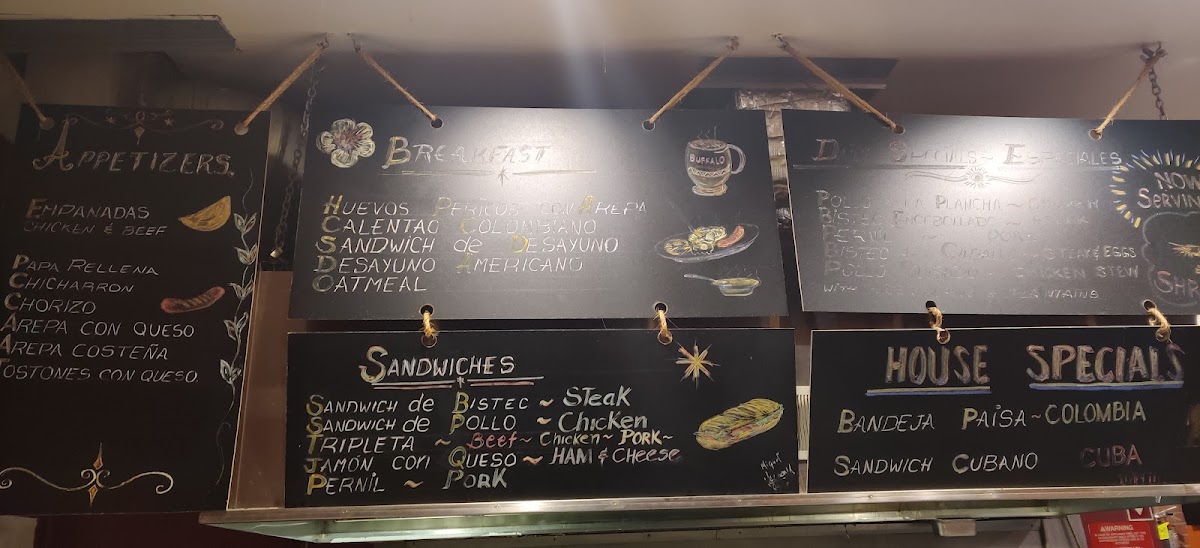 APPETIZERS.
EMPANADAS
CHICKEN & BEEF
PAPA RELLENA
CHICHARRON
CHORIZO
AREPA CON QUESO
AREPA COSTEÑA
TOSTONES CON QUESO.
BREAKFAST
BUFFALO
HUEVOS PERICOS CON AREPA
CALENTAO COLOMBIANO
SANDWICH de DESAYUNO
DESAYUNO AMERICANO
OATMEAL
SANDWICHES
SANDWICH de BISTEC ~ STEAK
SANDWICH de POLLO ~ Chicken
TRIPLETA ~ BEEF ~ CHICKEN ~ PORK ~
JAMÓN CON QUESO ~ HAM & CHEESE
PERNIL ~ PORK
SPECIALS ~ ESPECIALES
NOW
SERVIN
POLLO LA PLANCHA ~
BISTEC ENCEBOLLADO ~
PERNIL ~ PORK
BISTEC STEAK & EGGS
POLLO ~ CHICKEN STEW
WITH & PLANTAINS
SHR
HOUSE SPECIALS
BANDEJA PAISA ~ COLOMBIA
SANDWICH CUBANO CUBA
WARNING